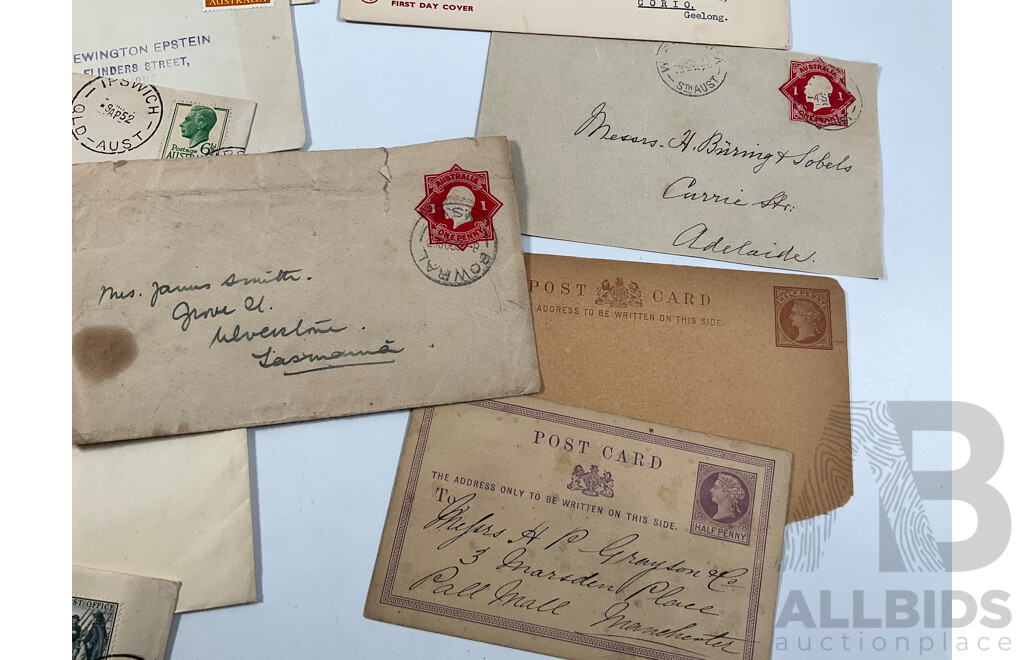 AUSTRALIA
FIRST DAY COVER
CORIO,
Geelong.
EWINGTON EPSTEIN
FLINDERS STREET,
IPSWICH
9AP52
QLD-AUST
Postage
AUSTRALIA
6½
STH AUST
AUSTRALIA
1 1
ONE PENNY
Messrs. H. Büring & Sobels
Currie Str:
Adelaide.
AUSTRALIA
1 1
ONE PENNY
BOWRAL
Mrs. James Smith.
Grove St.
Ulverstone.
Tasmania
POST CARD
ADDRESS TO BE WRITTEN ON THIS SIDE.
HALF PENNY
POST CARD
THE ADDRESS ONLY TO BE WRITTEN ON THIS SIDE.
HALF PENNY
To
Messrs H P Grayson & Co
3 Marsden Place
Pall Mall Manchester
POST OFFICE
AB
ALLBIDS
auctionplace